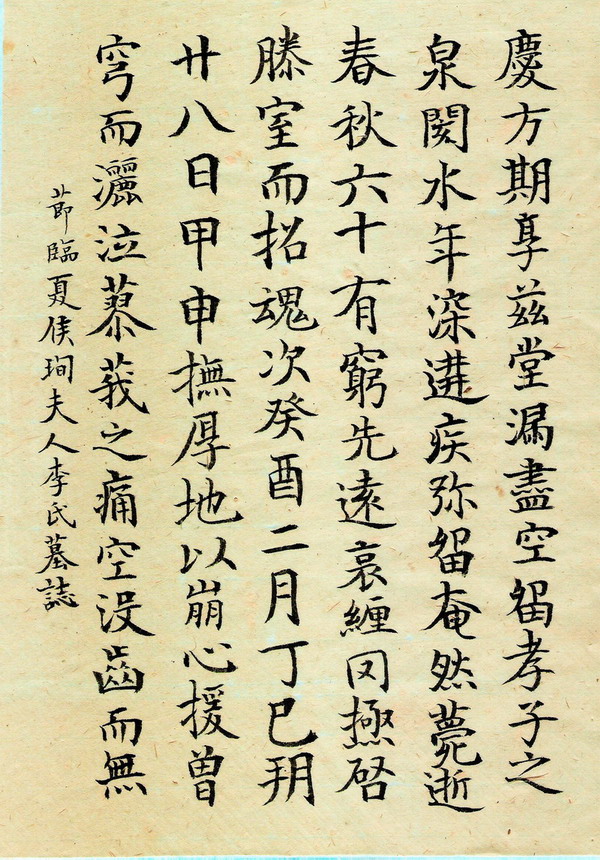 慶方期享茲堂漏盡空留孝子之
泉閱水年深遘疾弥留奄然薨逝
春秋六十有窮先遠哀纏罔極啓
滕室而招魂次癸酉二月丁巳朔
廿八日甲申撫厚地以崩心援曾
穹而灑泣蓼莪之痛空没齒而無
節臨夏侯珣夫人李氏墓誌